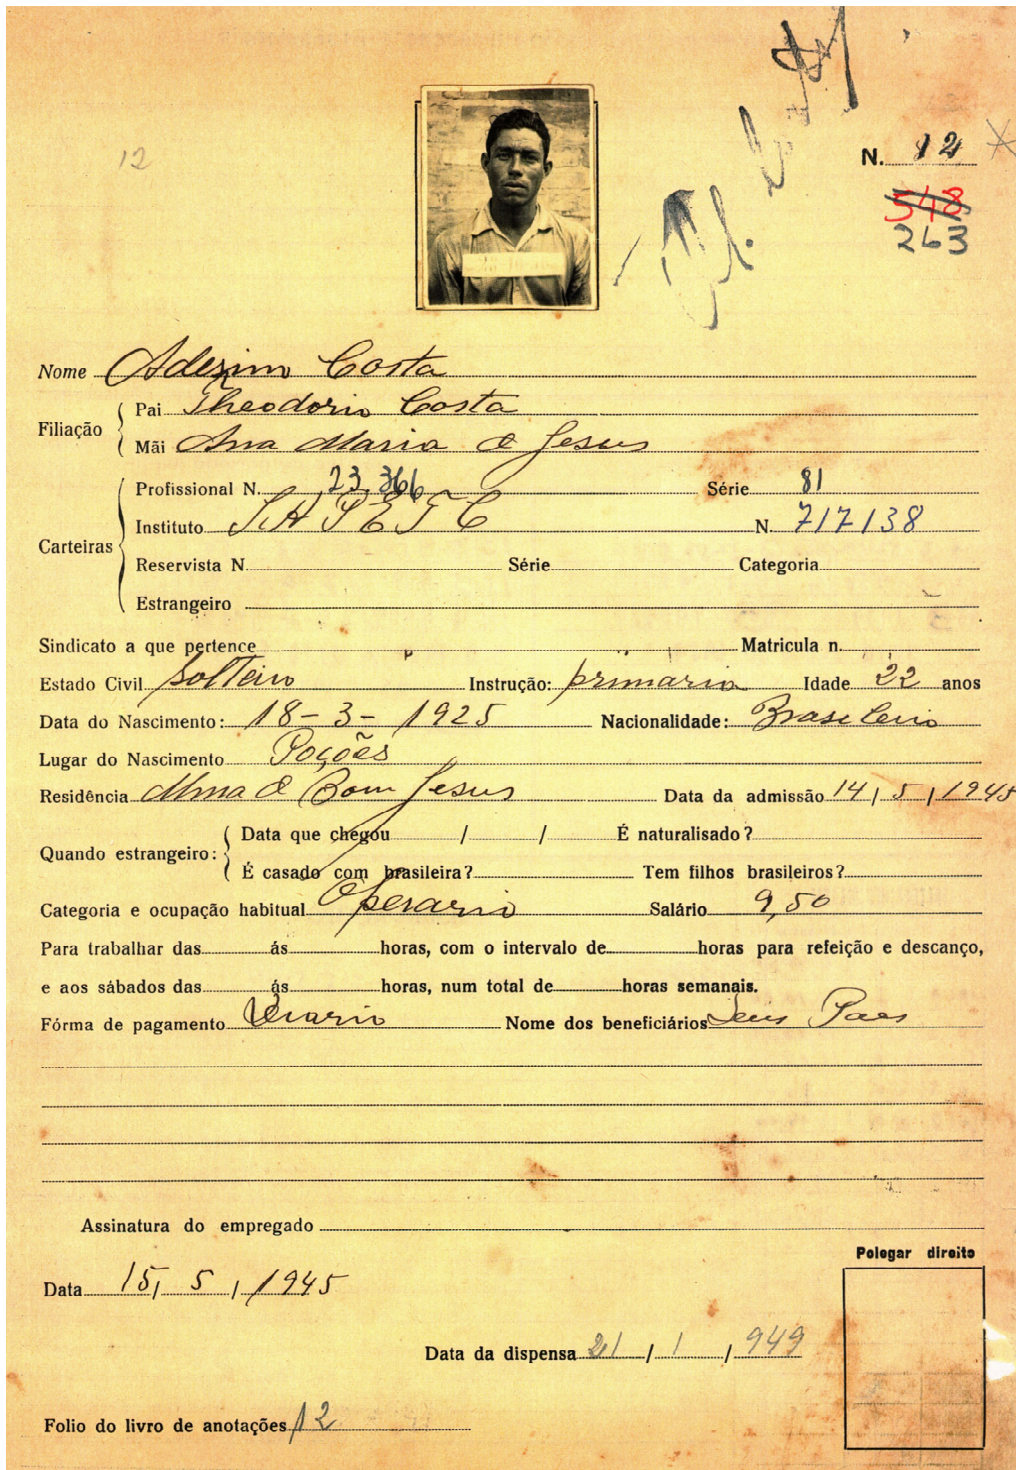 12
N. 12
548
263
Nome Costa
Filiação
Pai Theodorio Costa
Mãi Ana Maria d Jesus
Carteiras
Profissional N. 23.366 Série 81
Instituto I A P E T C N. 717138
Reservista N. Série Categoria
Estrangeiro
Sindicato a que pertence Matricula n.
Estado Civil solteiro Instrução: primaria Idade 22 anos
Data do Nascimento: 18-3-1925 Nacionalidade: Brasileiro
Lugar do Nascimento Poções
Residência Bom Jesus Data da admissão 14/5/1945
Quando estrangeiro:
Data que chegou / / É naturalisado?
É casado com brasileira? Tem filhos brasileiros?
Categoria e ocupação habitual Operario Salário 9,50
Para trabalhar das ás horas, com o intervalo de horas para refeição e descanço,
e aos sábados das ás horas, num total de horas semanais.
Fórma de pagamento Diario Nome dos beneficiários Seus Paes
Assinatura do empregado
Polegar direito
Data 15/5/1945
Data da dispensa 21/1/949
Folio do livro de anotações 12